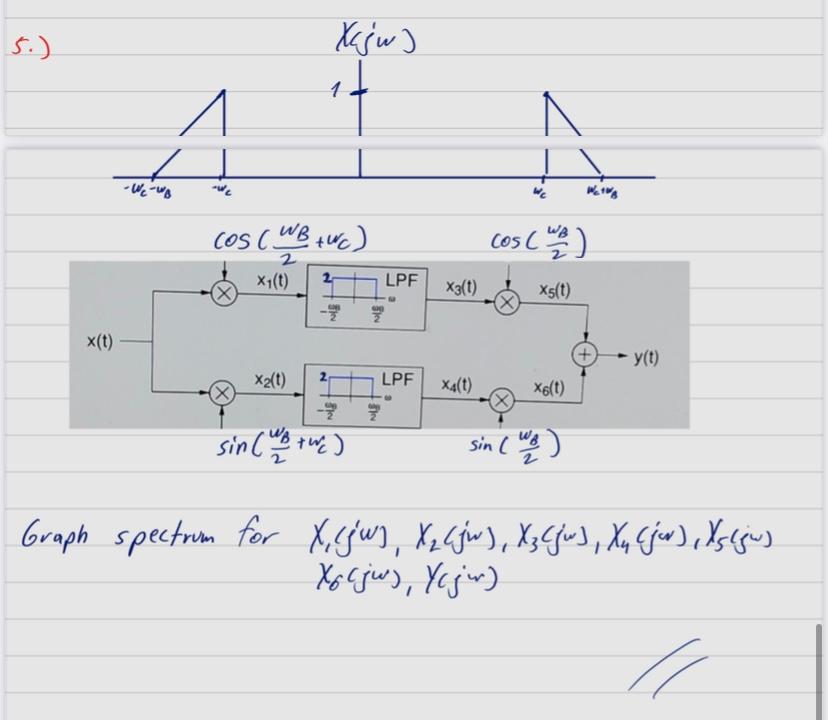 5.)
X(jω)
1
-ωc-ωB
-ωc
ωc
ωc+ωB
cos(ωB/2 + ωc)
cos(ωB/2)
x1(t)
2
LPF
ω
-ωB/2
ωB/2
x3(t)
x5(t)
x(t)
y(t)
x2(t)
2
LPF
ω
-ωB/2
ωB/2
x4(t)
x6(t)
sin(ωB/2 + ωc)
sin(ωB/2)
Graph spectrum for X1(jω), X2(jω), X3(jω), X4(jω), X5(jω)
X6(jω), Y(jω)